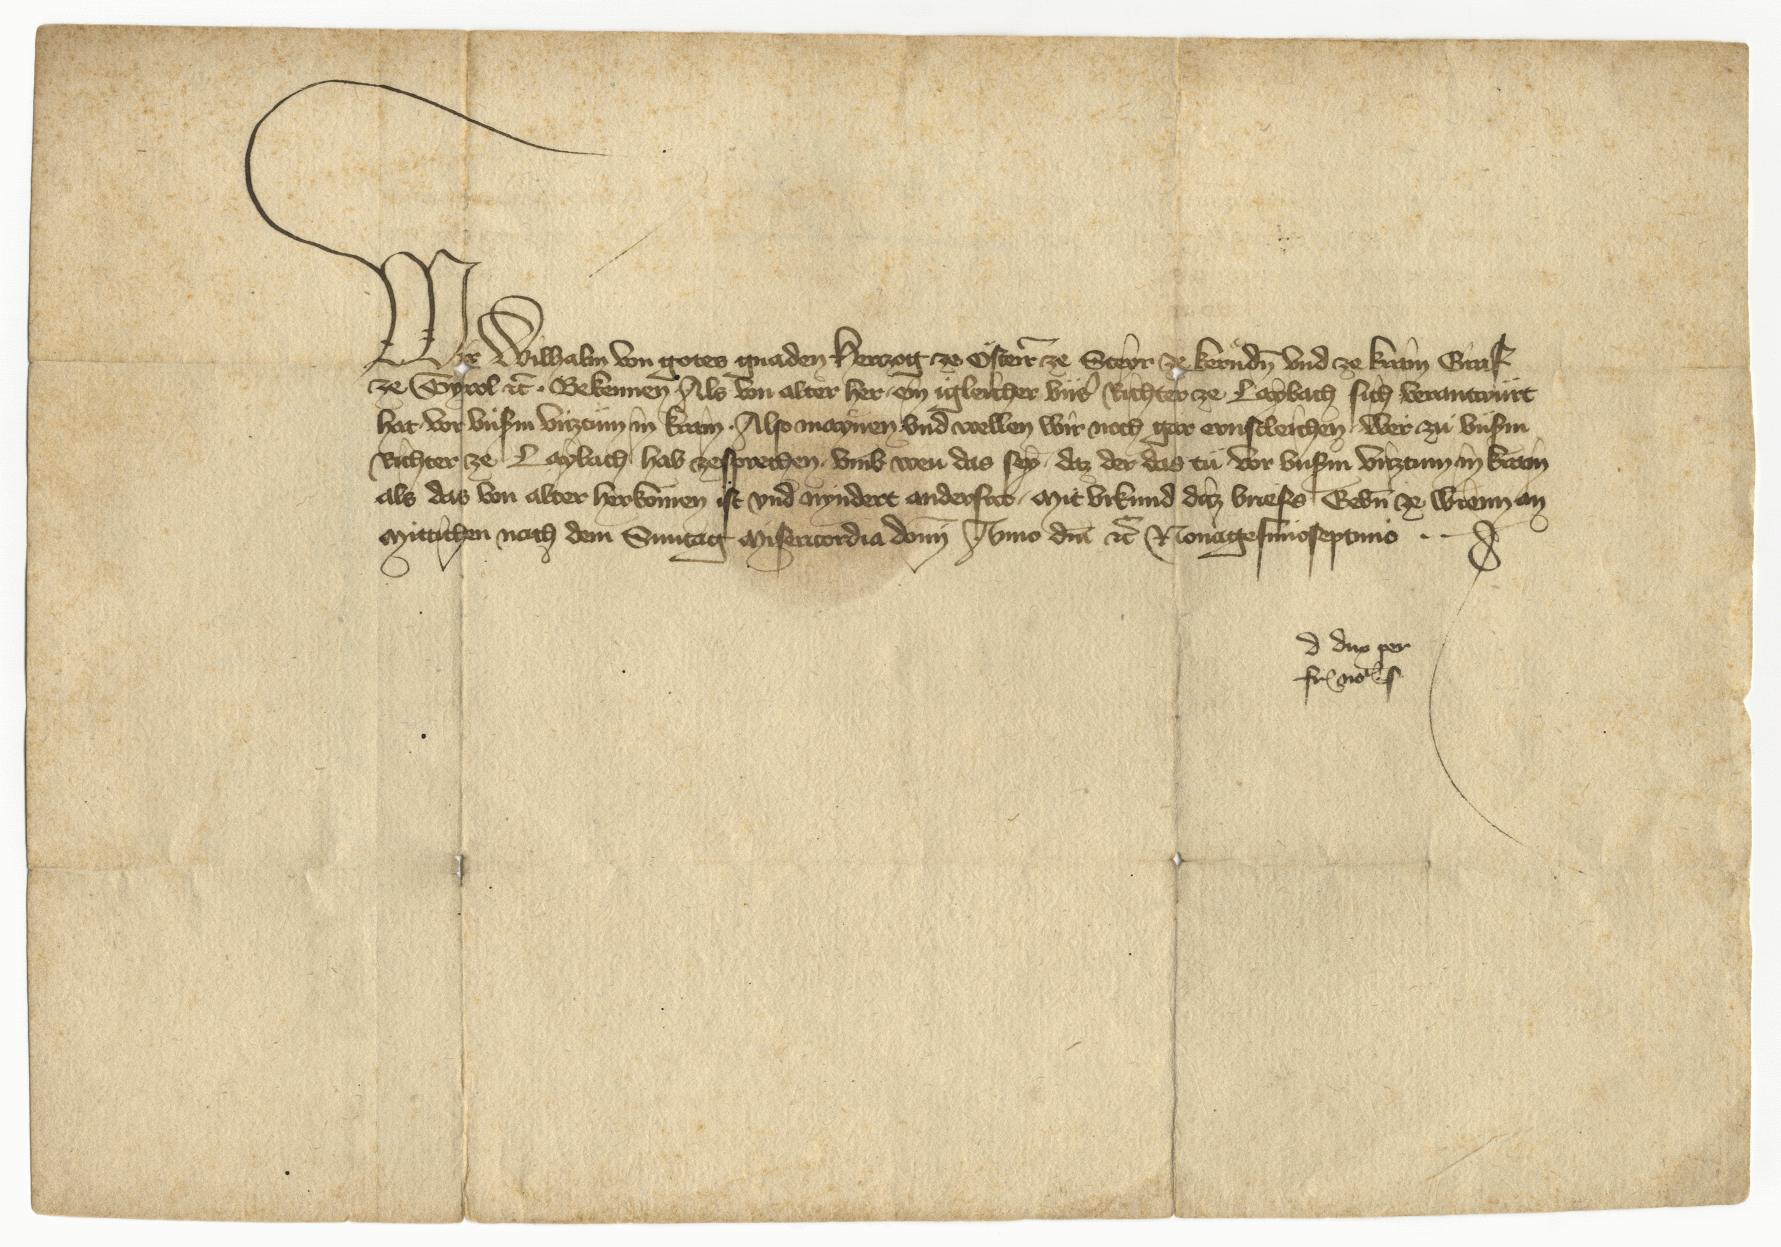 Wir Wilhalm von gotes gnaden Herczog ze Österr̄ ze Steyr ze kernden̄ vnd ze krain Graf
ze Tyrol ꝛc̄ . Bekennen Als von alter her ein igleicher vns̄ Richter ze Laybach sich verantwürt
hat vor vnserm viztum in krain . Also maynen vnd wellen wir noch gar ernstleichen wer zu vnserm
Richter ze Laybach hab zesprechen vmb wew das sey daz der das tü vor vnserm viztum in krain
als das von alter herkomen ist vnd nyndert anderswo Mit vrkund dicz briefs Gebn̄ ze wienn an
Mittichen nach dem Sunntag Misericordia domī Anno dnī ꝛc̄ Nonagesimoseptimo
d dux per